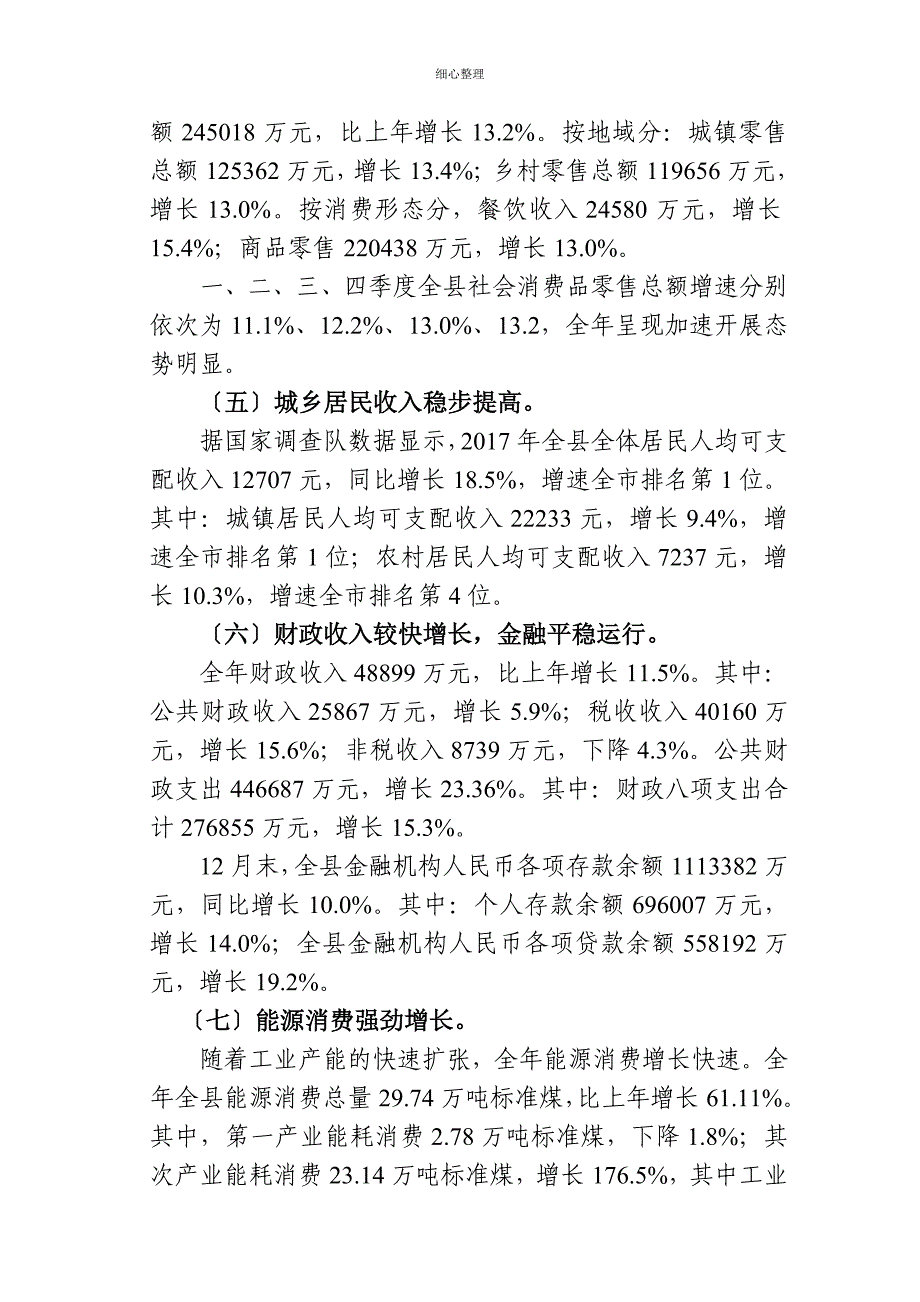 细心整理
额 245018 万元，比上年增长 13.2%。按地域分：城镇零售
总额 125362 万元，增长 13.4%；乡村零售总额 119656 万元，
增长 13.0%。按消费形态分，餐饮收入 24580 万元，增长
15.4%；商品零售 220438 万元，增长 13.0%。
一、二、三、四季度全县社会消费品零售总额增速分别
依次为 11.1%、12.2%、13.0%、13.2，全年呈现加速开展态
势明显。
〔五〕城乡居民收入稳步提高。
据国家调查队数据显示，2017 年全县全体居民人均可支
配收入 12707 元，同比增长 18.5%，增速全市排名第 1 位。
其中：城镇居民人均可支配收入 22233 元，增长 9.4%，增
速全市排名第 1 位；农村居民人均可支配收入 7237 元，增
长 10.3%，增速全市排名第 4 位。
〔六〕财政收入较快增长，金融平稳运行。
全年财政收入 48899 万元，比上年增长 11.5%。其中：
公共财政收入 25867 万元，增长 5.9%；税收收入 40160 万
元，增长 15.6%；非税收入 8739 万元，下降 4.3%。公共财
政支出 446687 万元，增长 23.36%。其中：财政八项支出合
计 276855 万元，增长 15.3%。
12 月末，全县金融机构人民币各项存款余额 1113382 万
元，同比增长 10.0%。其中：个人存款余额 696007 万元，
增长 14.0%；全县金融机构人民币各项贷款余额 558192 万
元，增长 19.2%。
〔七〕能源消费强劲增长。
随着工业产能的快速扩张，全年能源消费增长快速。全
年全县能源消费总量 29.74 万吨标准煤，比上年增长 61.11%。
其中，第一产业能耗消费 2.78 万吨标准煤，下降 1.8%；其
次产业能耗消费 23.14 万吨标准煤，增长 176.5%，其中工业